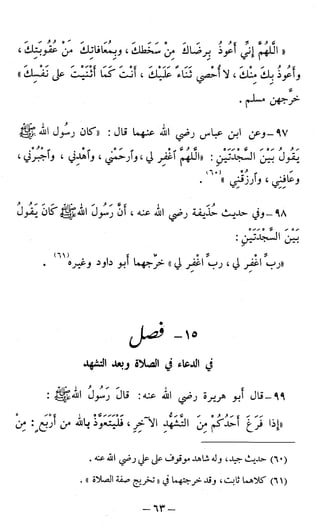 « اللَّهُمَّ إِنِّي أَعُوذُ بِرِضَاكَ مِنْ سَخَطِكَ، وَبِمُعَافَاتِكَ مِنْ عُقُوبَتِكَ،
وَأَعُوذُ بِكَ مِنْكَ، لَا أُحْصِي ثَنَاءً عَلَيْكَ، أَنْتَ كَمَا أَثْنَيْتَ عَلَى نَفْسِكَ »
خرَّجهن مسلم .
٩٧- وعن ابن عباس رضي الله عنهما قال : «كان رسول الله ﷺ
يَقُولُ بَيْنَ السَّجْدَتَيْنِ : «اللَّهُمَّ اغْفِر لي، وارحَمْني، وآهْدِني، وآجْبُرْني،
وعافِني، وآرزُقْني» (٦٠) .
٩٨- وفي حديث حُذيفة رضي الله عنه، أَنَّ رَسُولَ اللهِ ﷺ كَانَ يَقُولُ
بَيْنَ السَّجْدَتَيْنِ :
«ربِّ اغْفِر لي، ربِّ اغْفِر لي» خرَّجهما أبو داود وغيره (٦١) .
١٥- فصل
في الدعاء في الصلاة وبعد التشهد
٩٩- قال أبو هريرة رضي الله عنه: قالَ رَسُولُ اللهِ ﷺ :
«إذا فَرَغَ أَحَدُكُم مِنَ التَّشَهُّدِ الآخِرِ، فَليَتَعَوَّذْ بِالله من أربَعٍ: مِنْ
(٦٠) حديث جيد، وله شاهد موقوف على علي رضي الله عنه .
(٦١) كلاهما ثابت، وقد خرجتهما في «تخريج صفة الصلاة» .
– ٦٣ –